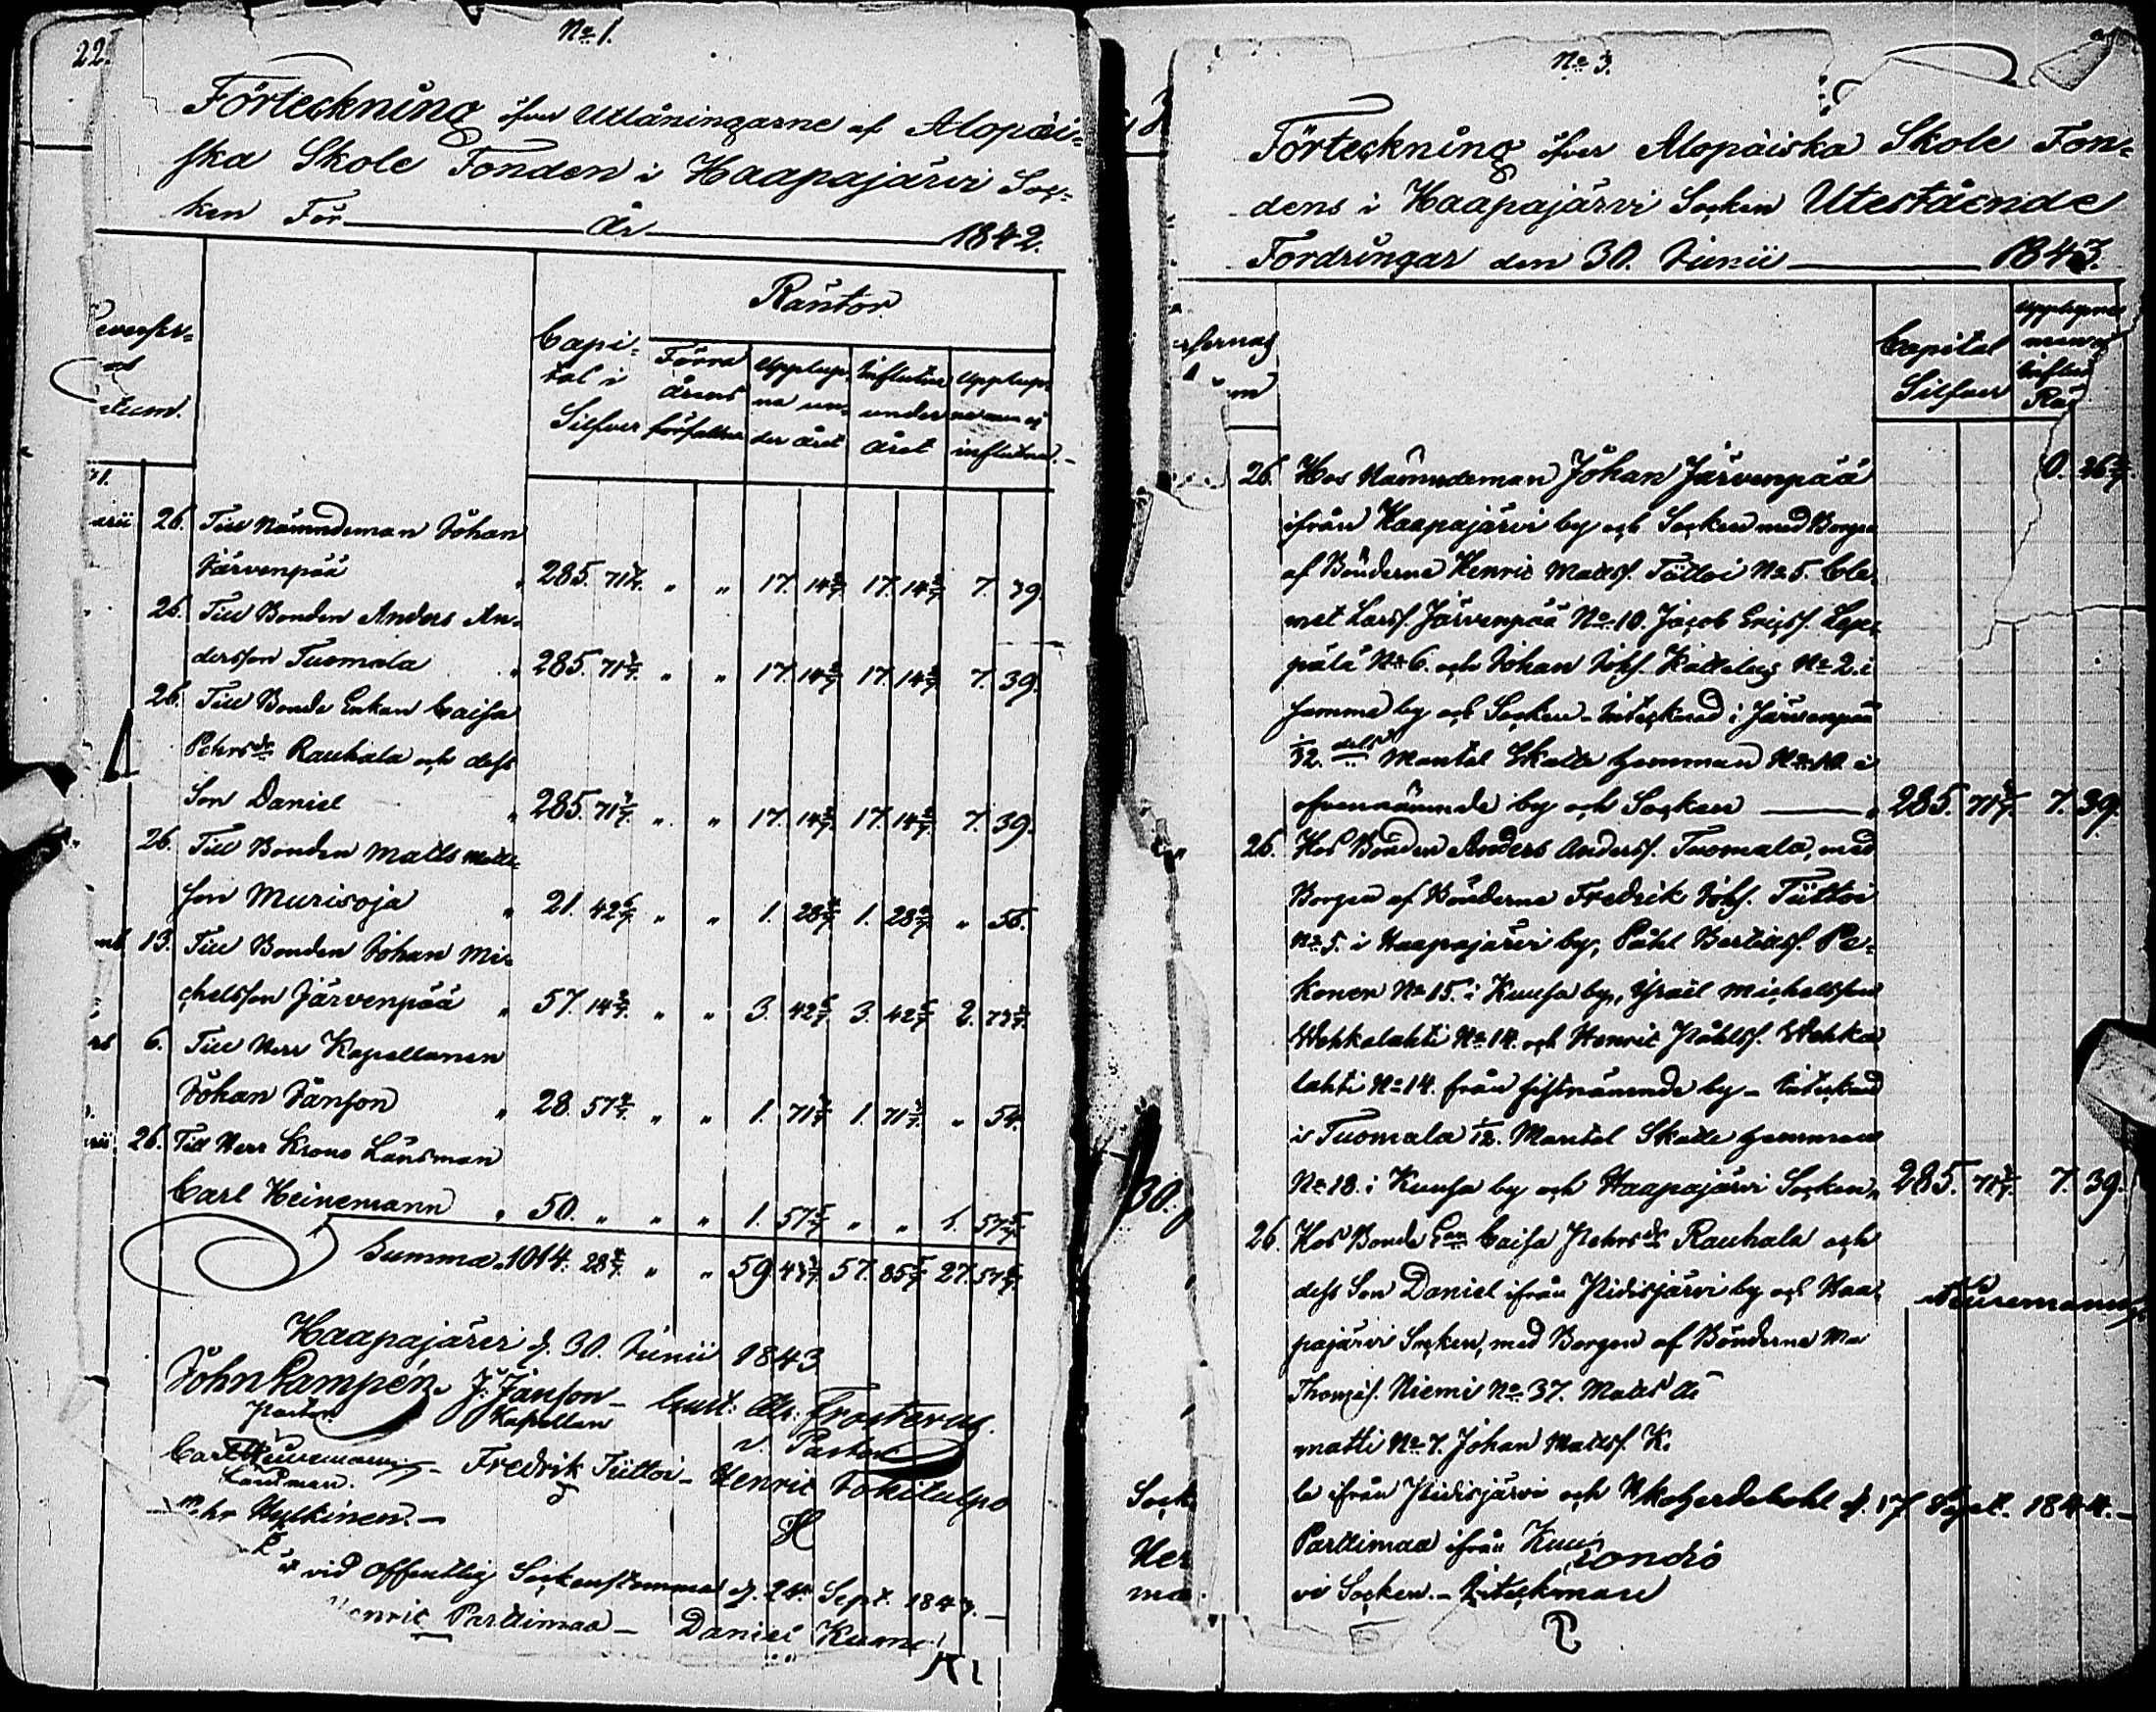 22.
No 1.
Förteckning öfver Utlåningarne af Alopæi-
ska Skole Fonden i Haapajärvi Soc-
ken För år 1842.
Räntor
Capi-
tal i
Silfver
Förra
årens
förfallne
Upplup-
ne un-
der året
Influtne
under
året
Upplup-
ne men ej
influtne.
26. Till Nämndeman Johan
Järvenpää " 285. 71 3/7. " " 17. 14 2/7 17. 14 2/7 7. 39.
26. Till Bonden Anders An-
dersson Tuomala " 285. 71 3/7. " " 17. 14 2/7 17. 14 2/7 7. 39.
26. Till Bonde Enkan Caisa
Pehrsdr Rauhala och dess
Son Daniel " 285. 71 3/7. " " 17. 14 2/7 17. 14 2/7 7. 39.
26. Till Bonden Matts Matts-
son Murisoja " 21. 42 6/7. " " 1. 28 4/7 1. 28 4/7 " 56.
13. Till Bonden Johan Mi-
chelsson Järvenpää " 57. 14 2/7. " " 3. 42 6/7 3. 42 6/7 2.
6. Till Herr Kapellanen
Johan Janson " 28. 57 1/7. " " 1. 71 3/7 1. 71 3/7 " 54.
26. Till Herr Krono Länsman
Carl Heinemann " 50. " " " 1. 57 " " 1. 57
Summa 1014. 28 4/7. " " 59. 43 57. 85 27. 57
Haapajärvi d. 30. Junii 1843
Joh Lampén. J. Janson - Gust: Ad: Frosterus.
Pastor Kapellan v. Pastor
Carl Heinemann - Fredrik Tüttoi - Henric Jokitalpo
Länsman.
Pehr Hylkinen. -
vid offentlig Sockenstämma d. 24. Sept. 1843. -
Henric Parttimaa - Daniel Kumo
No 3.
Förteckning öfver Alopæiska Skole Fon-
dens i Haapajärvi Socken Utestående
Fordringar den 30. Junii 1843.
Capital
Silfver
Upplupne
men ej
influt
Rän
26. Hos Nämndeman Johan Järvenpää 0. 26
ifrån Haapajärvi by och Socken med Borgen
af Bönderne Henric Mattss. Tüttoi No 5. Cle-
met Larss. Järvenpää No 10. Jacob Ericss. Lepe-
pälä No 6. och Johan Johss. Kattelus No 2. i
samma by och Socken - Intecknad i Järvenpää
1/32. dels Mantal Skatte hemman No 10. i
ofvannämnde by och Socken 285. 71 3/7. 7. 39.
26. Hos Bonden Anders Anderss. Tuomala, med
Borgen af Bönderne Fredrik Johss. Tüttoi
No 5. i Haapajärvi by, Påhl Bertilss. Pe-
konen No 15. i Kuusa by, Israel Michelsson
Wehkalahti No 14. och Henric Påhlss. Wehka-
lahti No 14. från sistnämnde by - Intecknad
i Tuomala 1/12. Mantal Skatte hemman
No 18. i Kuusa by och Haapajärvi Socken " 285. 71 3/7. 7. 39.
26. Hos Bonde Enk Caisa Pehrsdr Rauhala och
dess Son Daniel ifrån Pidisjärvi by och Haa-
pajärvi Socken, med Borgen af Bönderne Ma
Heinemann
Thomæs. Niemi No 37. Matts
matti No 7. Johan Mattss. K
le ifrån Pidisjärvi och d. 17 Sept. 1844. -
Parttimaa ifrån Kuus
vi Socken. - Inteckman
30.
Sock
Her
ma